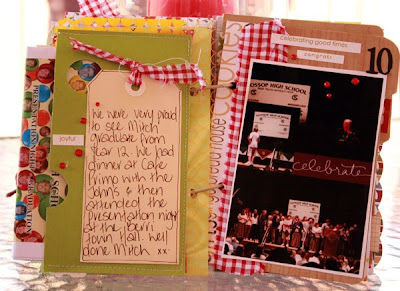 PRESENTATION
GRADUATION
joyful
We were very proud
to see Mitch
graduate from
Year 12. We had
dinner at Cafe
Primo with the
John's & then
attended the
presentation night
at the Barr
Town Hall. Well
done Mitch xx
cookies
house
celebrating good times
congrats
10
GOSSOP HIGH SCHOOL
celebrate